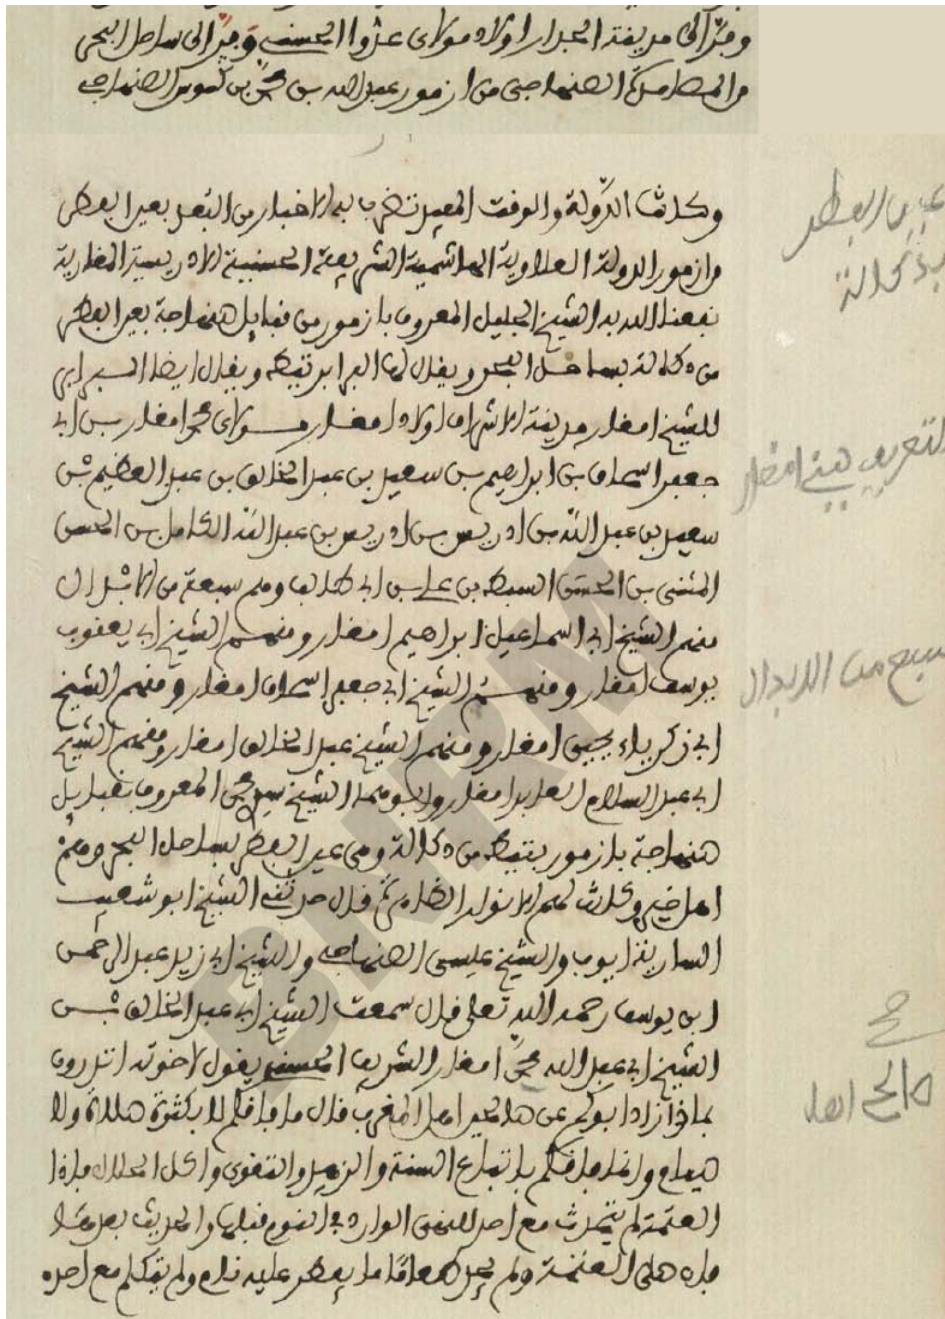 ومر الى مدينة الجدار اولاد مولاى عزوا الحسنى ومر الى ساحل البحر
الصنهاجى من ازمور عبد الله بن محمد بن الصنهاجى
وكانت الدولة والوقت تضرب به الاخبار من
وازمور الدولة العلاوية الهاشمية الشريفة الحسنية الادريسية المغاربة
نفعنا الله به الشيخ الجليل المعروف بازمور من قبايل صنهاجة بعين الفطر
من دكالة بساحل البحر ويقال لها ويقال ايضا
للشيخ امغار مدينة الاشراف اولاد امغار مولاى محمد امغار بن ابى
جعفر اسحاق بن ابراهيم بن سعيد بن عبد الخالق بن عبد العظيم بن
سعيد بن عبد الله بن ادريس بن ادريس بن عبد الله الكامل بن الحسن
المثنى بن الحسن السبط بن على بن ابى طالب ومنهم سبعة من الابدال
منهم الشيخ ابى اسماعيل ابراهيم امغار ومنهم الشيخ ابى يعقوب
يوسف امغار ومنهم الشيخ ابى جعفر اسحاق امغار ومنهم الشيخ
ابى زكرياء يحيى امغار ومنهم الشيخ عبد الخالق امغار ومنهم الشيخ
ابى عبد السلام العابد امغار وابوهما الشيخ سيدى محمد المعروف بقبايل
صنهاجة بازمور بتيط من دكالة وهى عين الفطر بساحل البحر ومنهم
اهل خير وكانت لهم الانوار الظاهرة قال حدثنى الشيخ ابو شعيب
السارية ايوب والشيخ عيسى الصنهاجى والشيخ ابى زيد عبد الرحمن
ابن يوسف رحمه الله تعلى قال سمعت الشيخ ابى عبد الخالق بن
الشيخ ابى عبد الله محمد امغار الشريف الحسنى يقول لاخوته اتدرون
بماذا زاد ابوكم عن صالحين اهل المغرب قال ما فاقهم الا بكثرة صلاة ولا
صيام وانما فاقهم باتباع السنة والزهد والتقوى واكل الحلال فاذا
العتمة لم يتحدث مع احد للنهى الوارد فى النوم قبلها والحديث بعدها
فاذا صلى العتمة ولم يجد طعاما ما يفطر عليه نام ولم يتكلم مع احد
عين الفطر
بدكالة
التعريف ببنى امغار
سبع من الابدال
صح
صالحى اهل